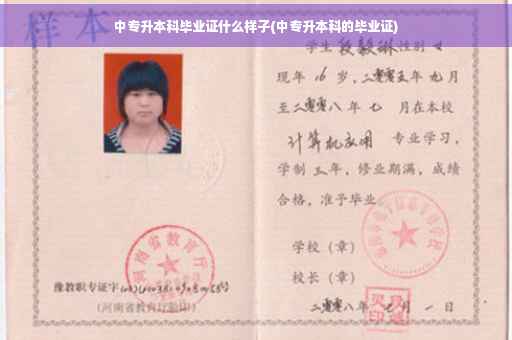 中专升本科毕业证什么样子(中专升本科的毕业证)
样本
学生 段毅琳 性别 女
现年 16 岁，二零零五年 九 月
至二零零八 年 七 月在本校
计算机应用 专业学习，
学制 三 年，修业期满，成绩
合格，准予毕业
学校（章）
校长（章）
二零零八年 七 月 一 日
河南省教育厅
豫教职专证字
(河南省教育厅验印)